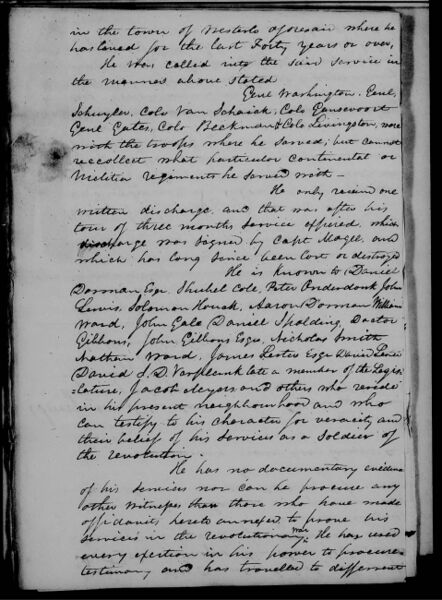 in the town of Westerlo aforesaid where he
has lived for the last Forty years or over,
He was called into the said service in
the manner above stated
Genl Washington, Genl
Schuyler, Colo Van Schaick, Colo Gansevoort
Genl Gates, Colo Beekman & Colo Livingston, were
with the troops where he served; but cannot
reccollect what particular Continental or
Militia regiments he served with—
He only received one
written discharge, and that was after his
tour of three months service expired, which
discharge was signed by Capt Magee, and
which has long since been lost or destroyed
He is known to Daniel
Dorman Esqr Shubel Cole, Peter Onderdonk John
Lewis, Solomon Houck, Aaron Dorman William
Ward, John Gale Daniel Spalding, Doctor
Gibbons, John Gibbons Esqr, Nicholas Smith
Nathan Ward, James Lester Esqr David
David S. D. Varplanck late a member of the Legis-
lature, Jacob Meyers and others who reside
in his present neighbourhood and who
can testify to his character for veracity and
their belief of his services as a soldier of
the revolution.
He has no documentary evidence
of his services nor can he procure any
other witnesses than those who have made
affidavits hereto annexed to prove his
services in the revolutionary war. He has used
every exertion in his power to procure
testimony and has travelled to different